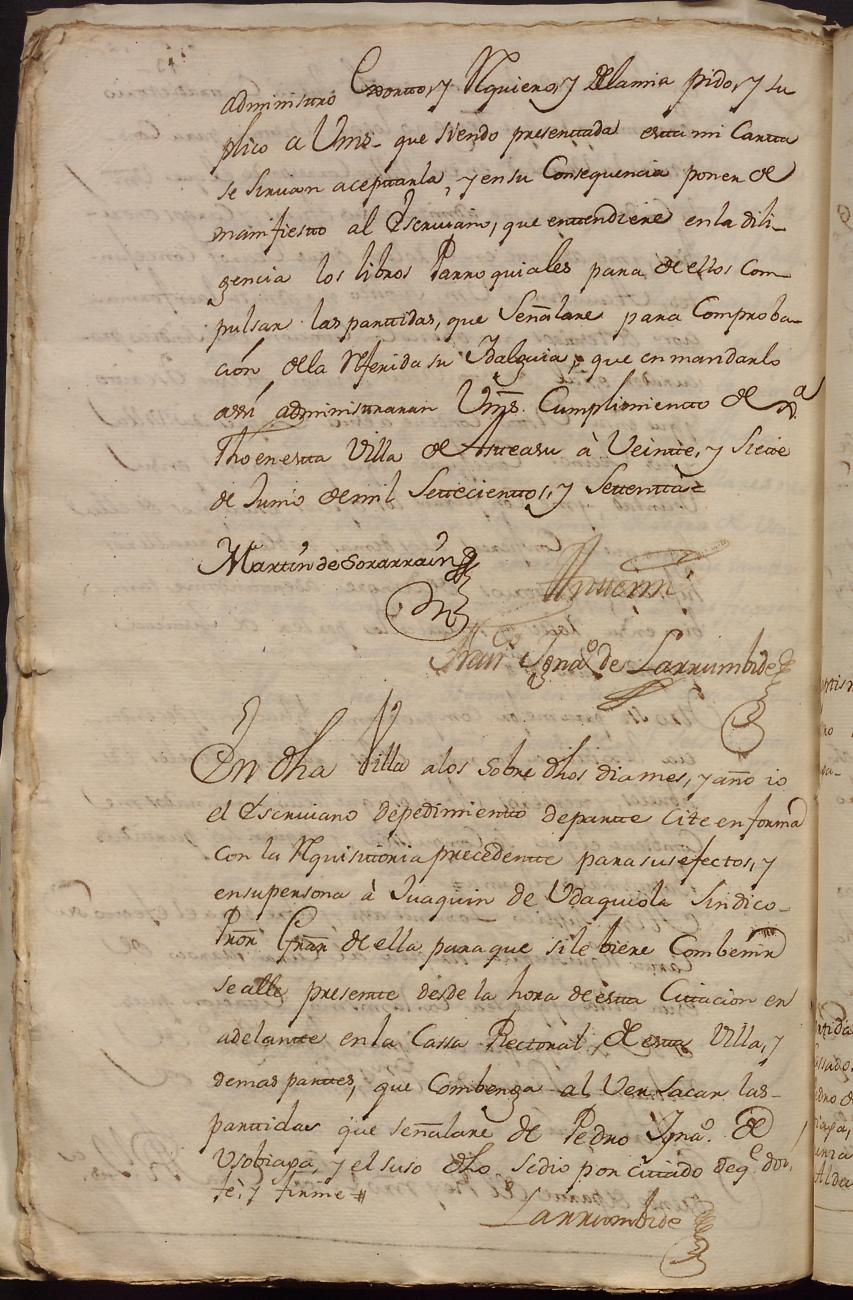 administro Exorto, y Requiero, y de la mia pido, y su
plico a Vms. que siendo presentada esta mi Carta
se sirvan aceptarla, y en su Consequencia poner de
manifiesto al Escrivano, que entendiere en la dili-
gencia los libros Parroquiales para de ellos Com-
pulsar las partidas, que Señalare para Comproba-
ción de la Referida su Idalguia, que en mandarlo
assi administraran Vms. Cumplimiento de
fho en esta Villa de Asteasu à Veinte, y Siete
de Junio de mil Settecientos, y Settenta=
Martin de Sorarrain
Ante mi
Fran.co Ygna.o de Larrumbide
En dha Villa a los sobre dhos dia mes, y año io
el Escrivano de pedimiento de parte Cite en forma
con la Requisitoria precedente para sus efectos, y
en su persona à Juaquin de Vdaquiola Sindico
Pror. Gral. de ella para que si le biere Combenir
se alle presente desde la hora de esta Citacion en
adelante en la Cassa Rectoral de esta Villa, y
demas partes, que Combenga al Ver Sacar las
partidas que señalare de Pedro Ygna.o de
Vsobiaga, y el suso dho se dio por citado de q.e doi
fè, y firme
Larrumbide